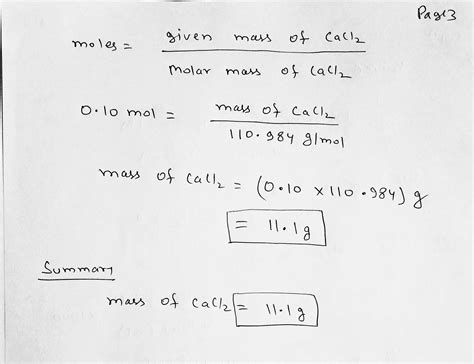 Page3
moles = given mass of CaCl2
molar mass of CaCl2
0.10 mol = mass of CaCl2
110.984 g/mol
mass of CaCl2 = (0.10 x 110.984) g
= 11.1g
Summary
mass of CaCl2 = 11.1g